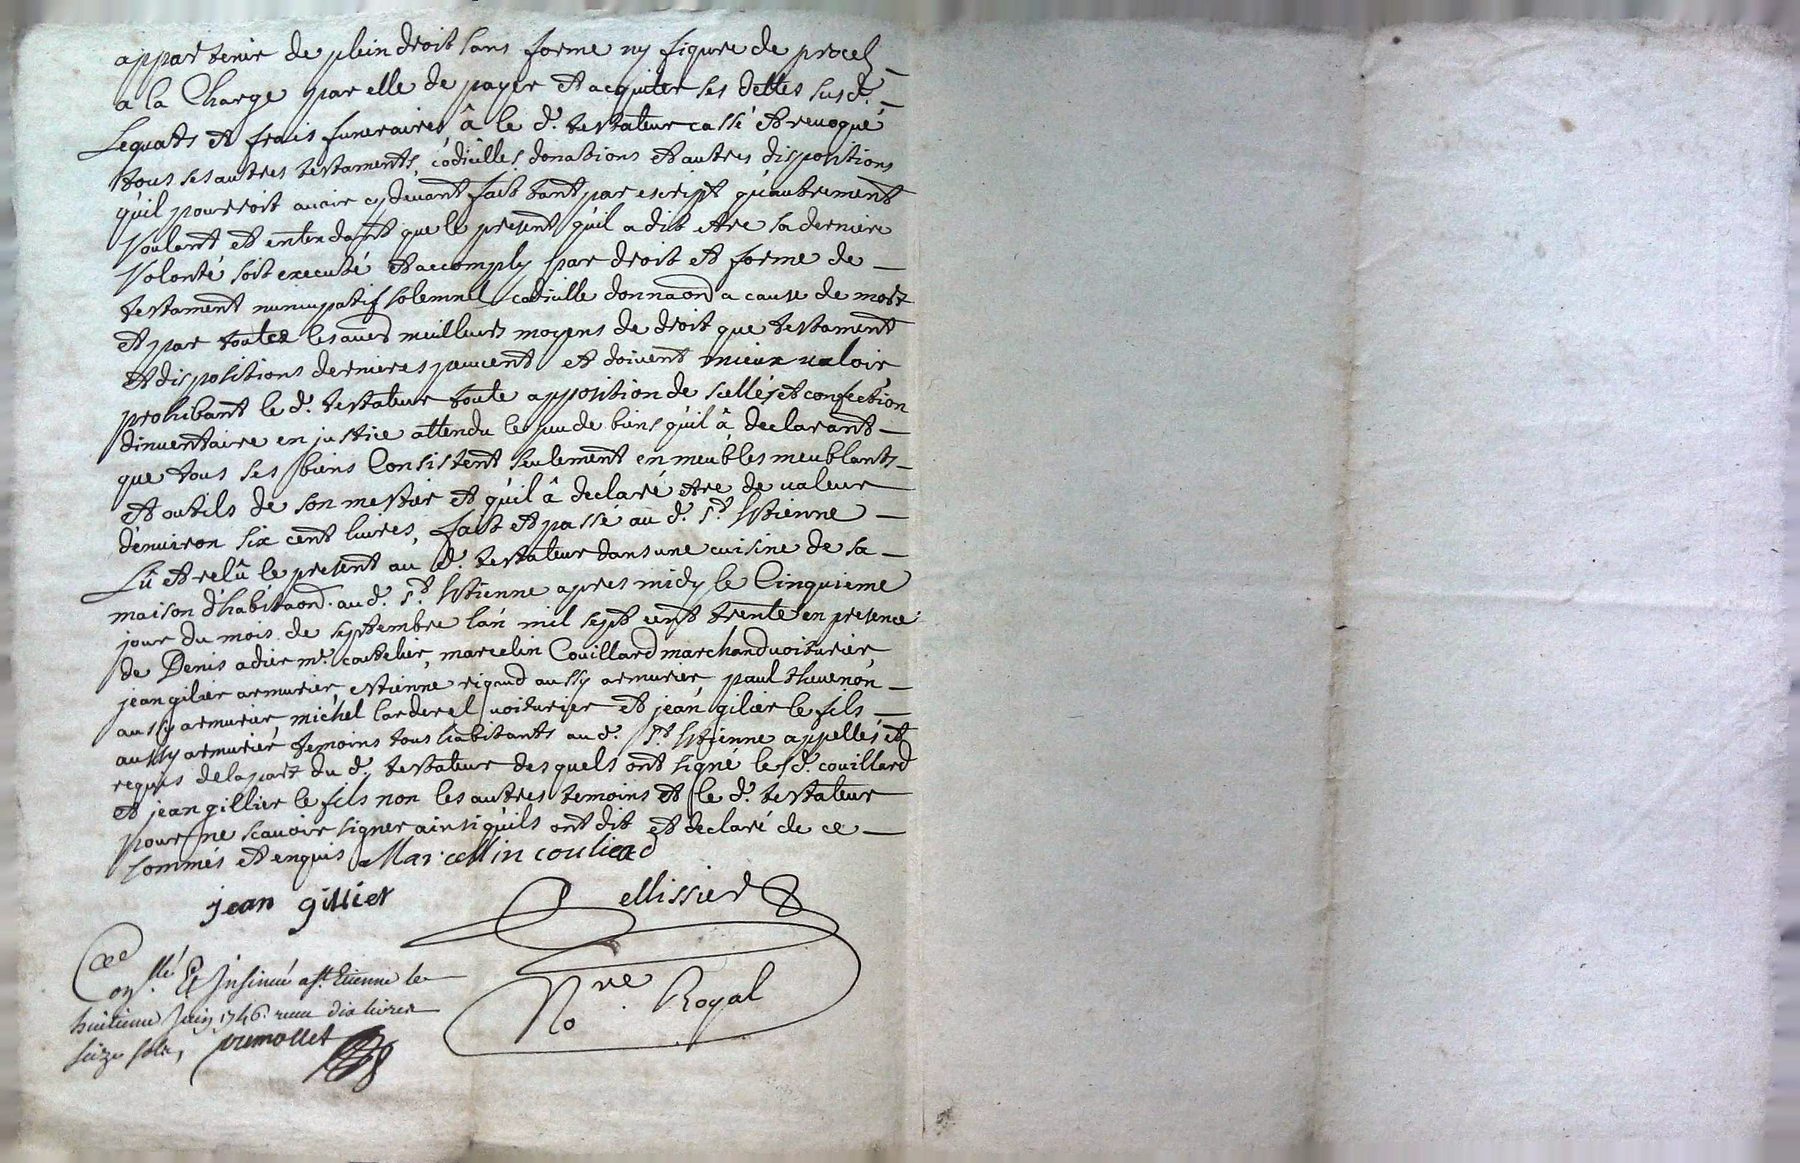 appartenir de plein droit sans forme ny figure de procès
a la Charge par elle de payer et acquiter ses dettes susd.
Lequats et frais funeraires, â le d. testateur cassé et reuoqué
tous ses autres testaments, codicilles, donations et autres dispositions
qu'il pourroit auoir cy deuant fait tant par escript qu'autrement
Voulant et entendant que le present qu'il a dit etre sa derniere
Volonté soit executé et accomply par droit et forme de
testament nuncupatif solemnel codicille donnaon a cause de mort
et par toutes les aues meilleurs moyens de droit que testament
et dispositions dernieres peuuent et doiuent mieux ualoir
prohibant le d. testateur toute apposition de scellés et confection
dinuentaire en justice attendu le peu de biens qu'il â declarant
que tous ses biens Consistent seulement en meubles meublants
et outils de son mestier et qu'il â declaré etre de ualeur
d'enuiron six cent liures, fait et passé au d. St. Estienne
Lû et relû le present au d. testateur dans une cuisine de sa
maison d'habitaon. au d. St. Estienne apres midy le Cinquieme
jour du mois de septembre l'an mil sept cent trente en presence
de Denis adier me. coutelier, marcelin Couillard marchand uoiturier
jean gilier armurier, estienne rigaud aussy armurier paul thuuenon
aussy armurier michel larderel uoiturier et jean gilier le fils
aussy armurier temoins tous habitants au d. St. Estienne appellés et
requis de la part du d. testateur desquels ont signé le d. couillard
et jean gillier le fils non les autres temoins et le d. testateur
pour ne scauoir signer ainsi qu'ils ont dit et declaré de ce
sommés et enquis Marcellin couliard
jean gillier
ellissier
Nore. Royal
Conllé Et Insinué a St. Etienne le
huitieme Juin 1746 receu dix liures
seize sols,